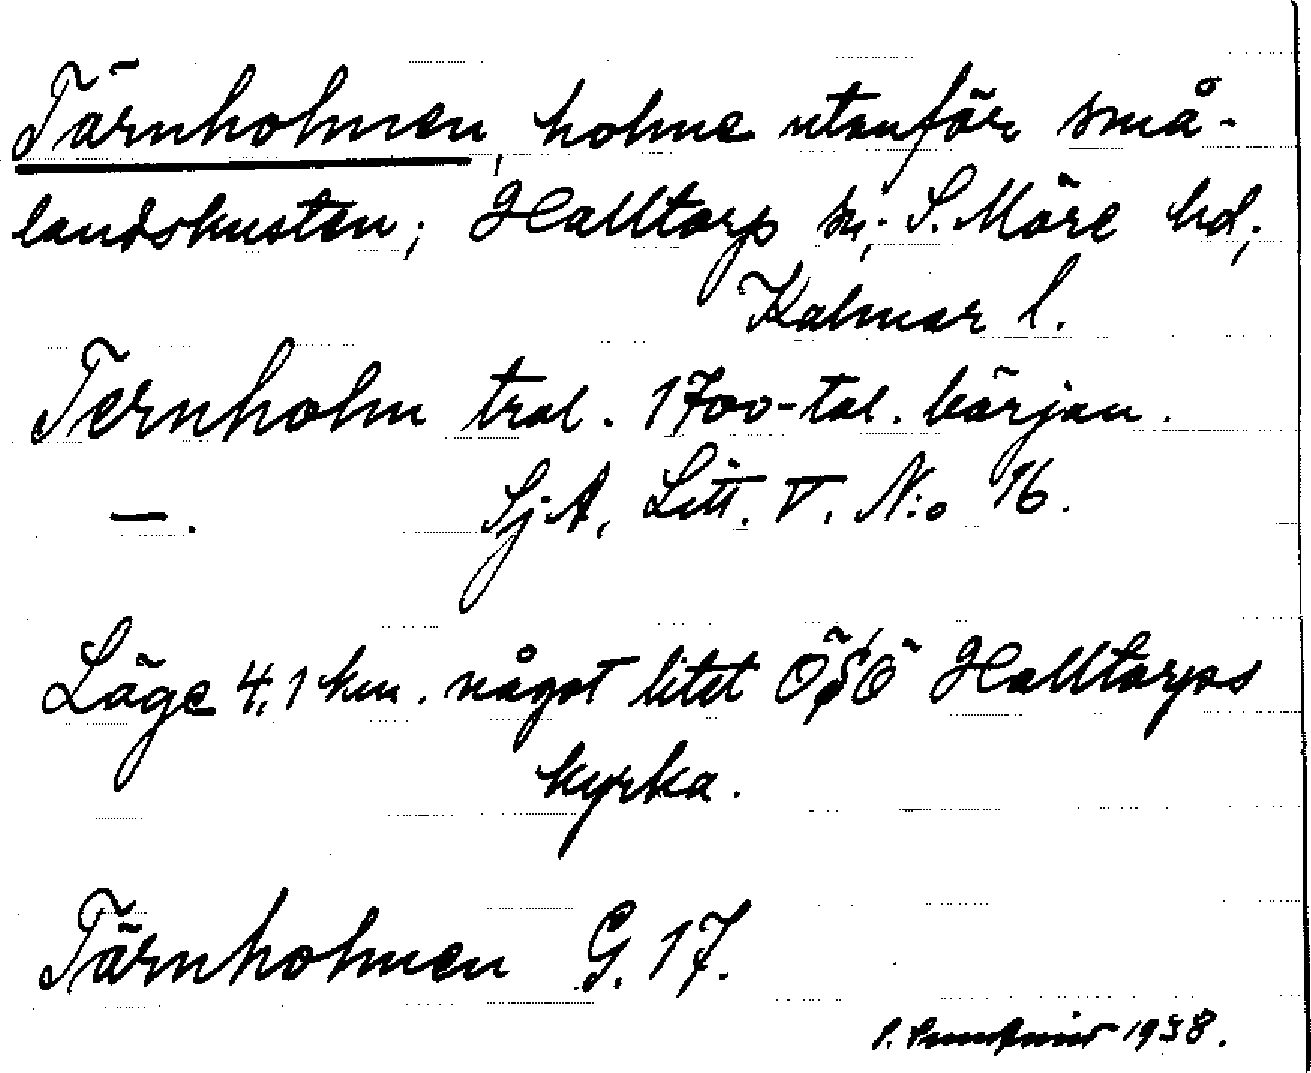 Tärnholmen, holme utanför små-
landskusten; Halltorp sn; S. Möre hd;
Kalmar l.
Ternholm tral. 1700-tal. början.
—. SjA, Litt. V. N:o 16.
Läge 4,1 km. något litet ÖSÖ Halltorps
kyrka.
Tärnholmen G. 17.
1938.